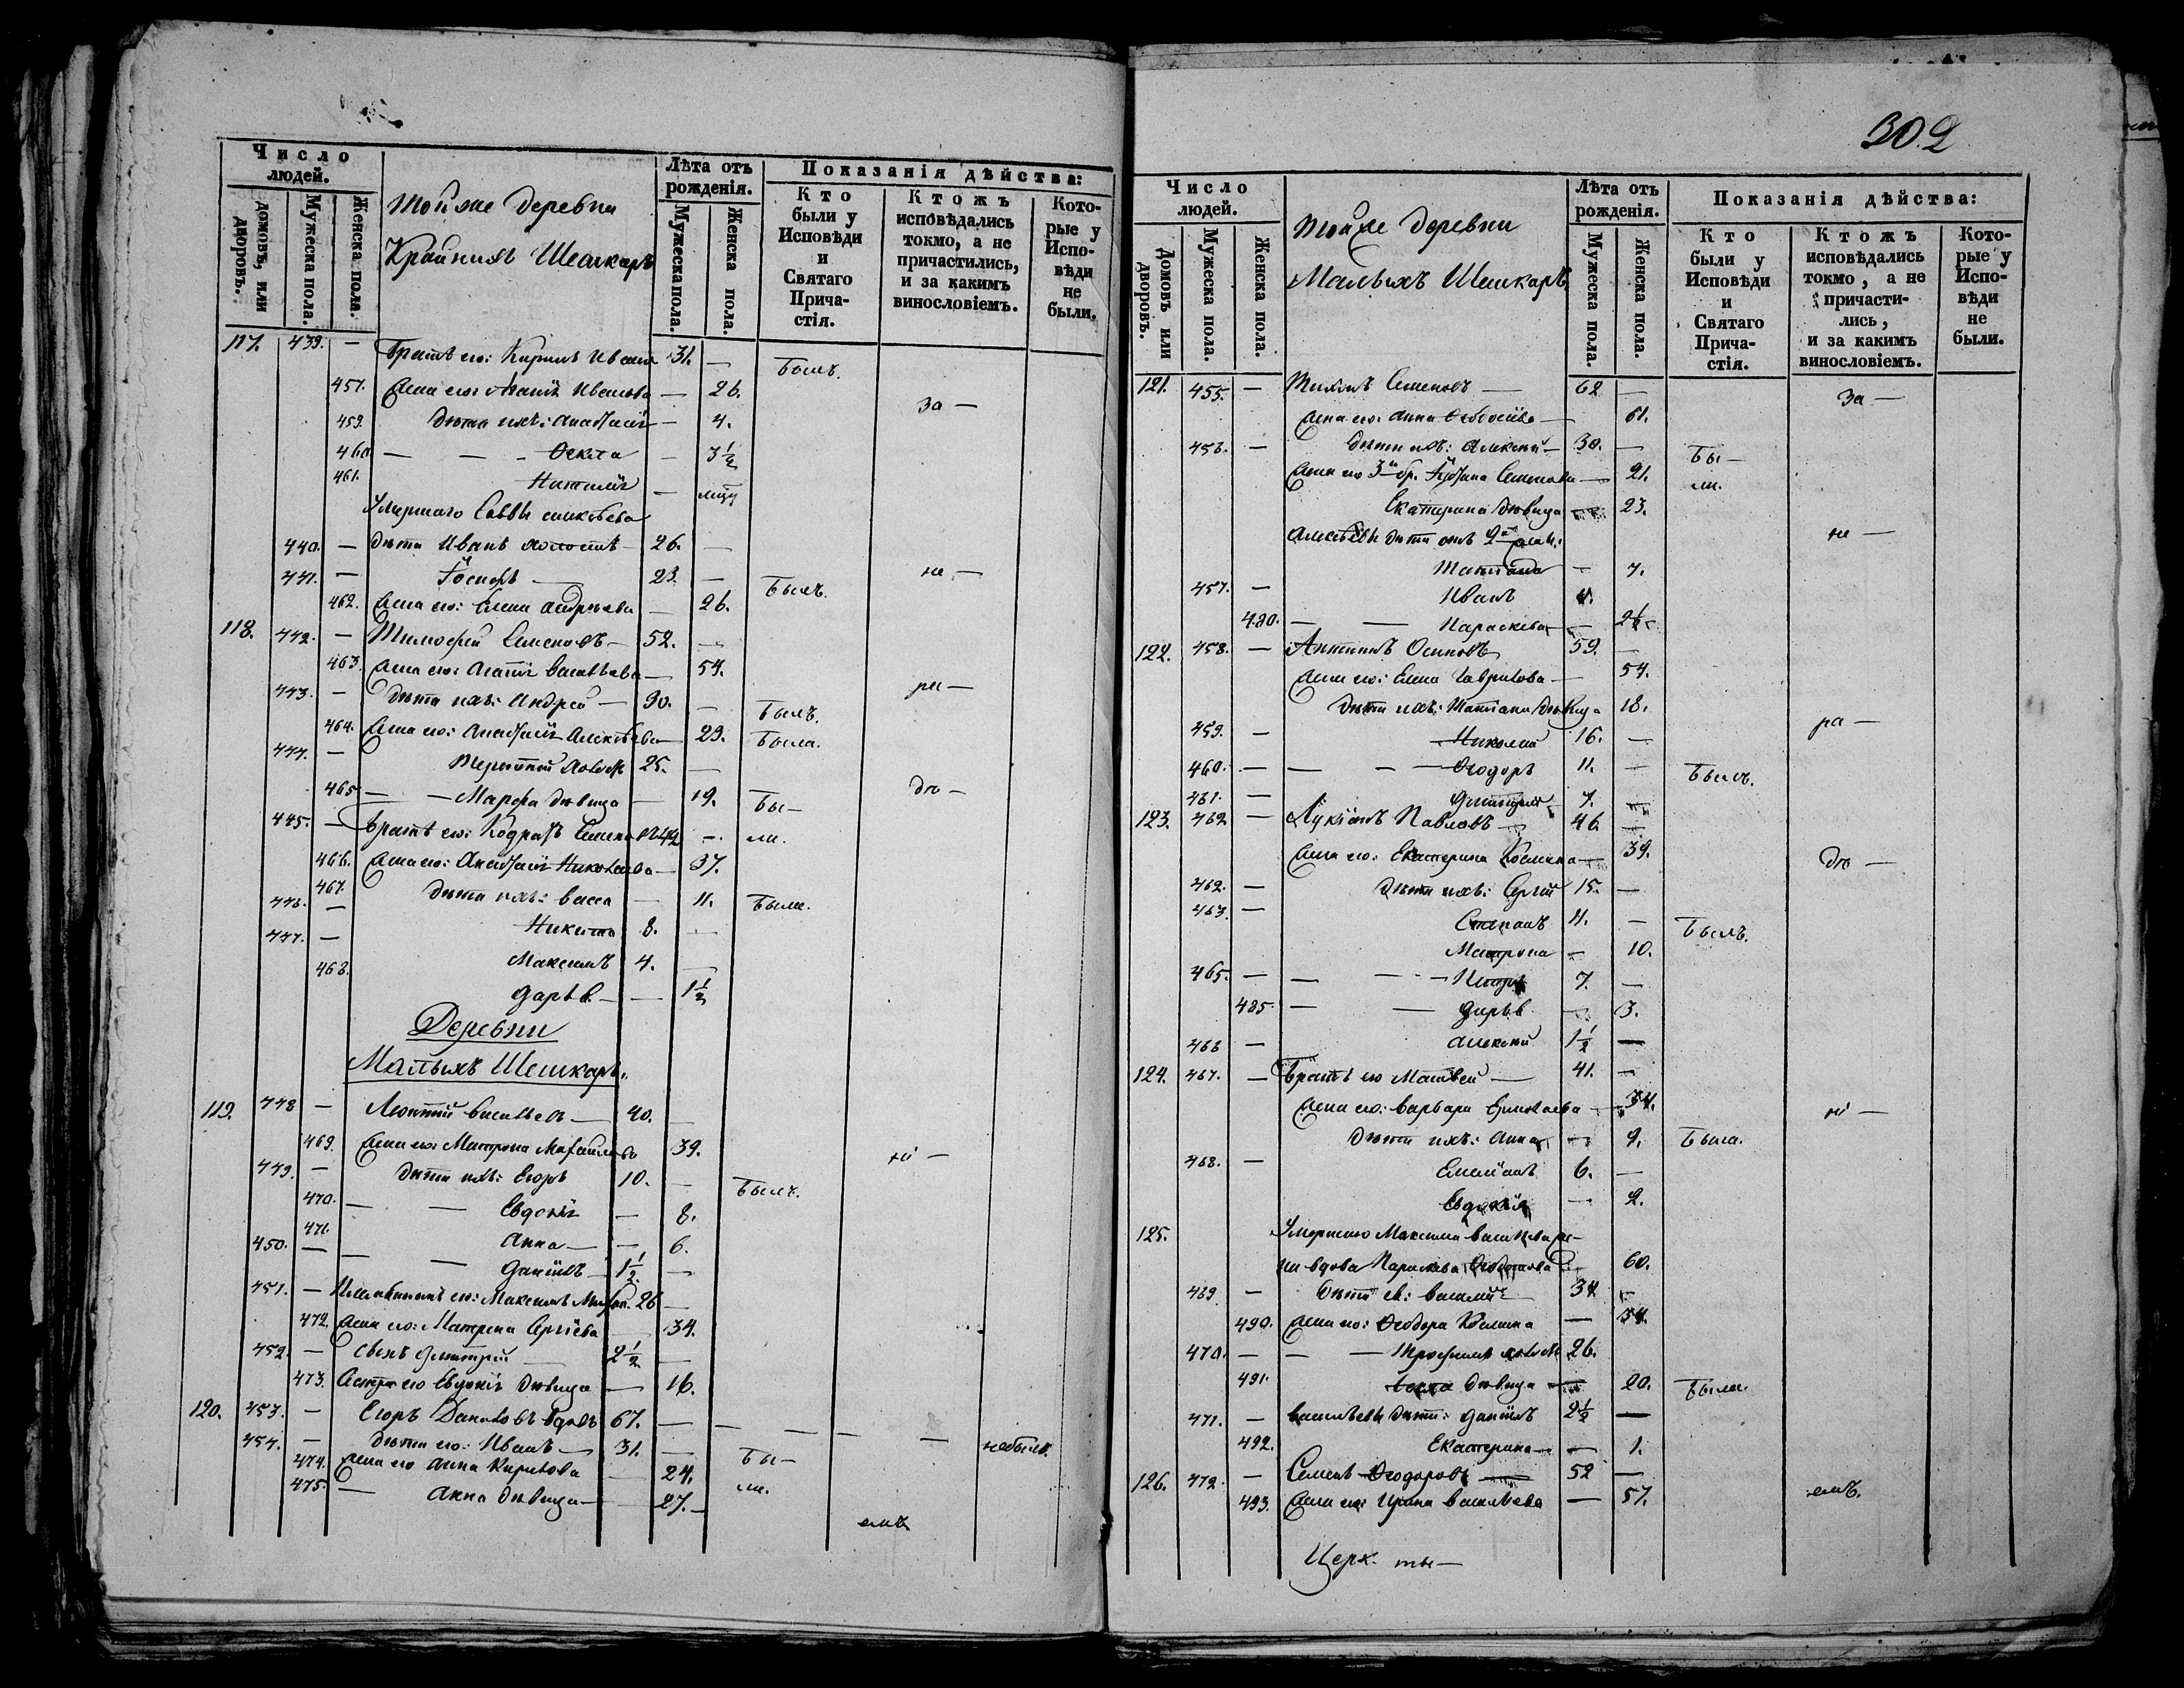 Число людей.
домовъ, или дворовъ.
Мужеска пола.
Женска пола.
Тойже деревни
Крайнихъ Шешкаръ
Лѣта отъ рожденія.
Мужеска пола.
Женска пола.
Показанія дѣйства:
Кто были у Исповѣди и Святаго Причастія.
Ктожъ исповѣдались токмо, а не причастились, и за какимъ винословіемъ.
Которые у Исповѣди не были.
117. 439. — Братъ его: Кирилъ Иванъ 31. — Былъ.
457. Жена его: Агаѳія Иванова — 26. За —
459. Дѣти ихъ: Анастасія — 4.
460. — — Ѳекла — 3½
461. Наталія —
Умершаго Саввы Алексѣева
440. — дѣти Иванъ холостъ — 26. —
441. — 23. — Былъ. не —
462. Жена его: Елена Андреева — 26.
118. 442. — Тимофей Семеновъ — 52. —
463. Жена его: Агаѳія Васильева — 54.
443. — Дѣти ихъ: Андрей — 30. — Былъ. ра —
464. Жена его: Анастасія Алексѣева — 29. Была.
444. — Терентій холост 25. —
465. — — Марфа дѣвица — 19. Бы — дѣ —
445. — Братъ его: Кодратъ Семенов 42 — ли.
466. Жена его: Анастасія Николаева — 37.
467. Дѣти ихъ: Васса — 11. Была.
446. — Никита 8. —
447. — Максимъ 4. —
468. Дарья — — 1½
Деревни
Малыхъ Шешкаръ.
119. 448 — Леонтій Васильевъ — 40. —
469. Жена его: Матрона Михайлова 39. нi —
449. — Дѣти ихъ: Егоръ 10. — Былъ.
470. — — Евдокія — 8.
471. Анна — — 6.
450. — — — Даніилъ — 1½ —
451. — Племянникъ его: Максимъ 26 —
472. Жена его: Матрена Сергіева — 34.
452. — Сынъ Димитрій — 2½ —
473. Сестра его Евдокія дѣвица — 16.
120. 453. — Егоръ Даниловъ вдовъ 67. — — — — — небылъ.
454. — Дѣти его: Иванъ — 31. — Бы —
474. Жена его Анна Кирилова — 24. ли.
475. — Анна дѣвица — 27. — емъ
302
Число людей.
Домовъ или дворовъ.
Мужеска пола.
Женска пола.
Тойже деревни
Малыхъ Шешкаръ
Лѣта отъ рожденія.
Мужеска пола.
Женска пола.
Показанія дѣйства:
Кто были у Исповѣди и Святаго Причастія.
Ктожъ исповѣдались токмо, а не причастились, и за какимъ винословіемъ.
Которые у Исповѣди не были.
121. 455. — Тихонъ Семеновъ — 62 — За —
Жена его: Анна — 61.
456. — Дѣти ихъ: Алексѣй — 30. — Бы —
Жена его 3 бр. Семенова — 21. ли.
Екатерина дѣвица — 23.
Алексѣевы дѣти отъ 2й жены: не —
Татіана — 7.
457. — Иванъ 4.
480. — — Параскева — 2½
122. 458. — Антипъ Осиповъ 59. —
Жена его: Елена Гаврилова — 54.
Дѣти ихъ: Татіана дѣвица 18. ра —
459. — Николай 16. —
460. — — — — Ѳеодоръ 11. — Былъ.
461. — Димитрій 7. —
123. 462 — Лукіанъ Павловъ — 46. —
Жена его: Екатерина Космина — 39. дѣ —
462. — Дѣти ихъ: Сергій 15. —
463. — Степанъ 11. — Былъ.
Матрона — 10.
465. — — — — Петръ 7. —
485. — — Дарья — 3.
466 — Алексѣй 1½ —
124. 467. — Братъ его Матвей — 41. —
Жена его: Варвара Ермолаева — 34. нi —
Дѣти ихъ: Анна — 9. Была.
468. — Емеліанъ 6. —
Евдокія — 2.
125. Умершаго Максима Васильева же-
на вдова Параскева — 60.
469. — Дѣти ея: Василій — 34. —
490. Жена его: Ѳеодора Космина — 34.
470. — — — Трофимъ холост 26.
491. дѣвица — 20. Были.
471. — Васильевы дѣти: Даніилъ 2½ —
492. Екатерина — — 1.
126. 472. — Семенъ Ѳеодоровъ — 52 —
493. Жена его: Ирина Васильева — 57. емъ.
Церк. ты —